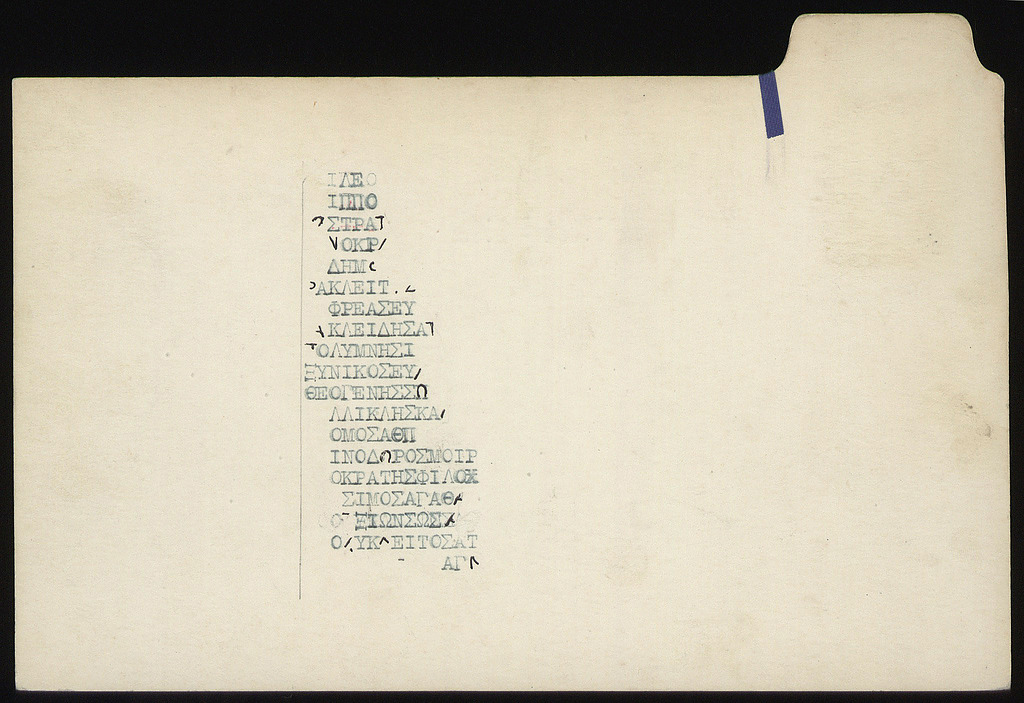 ΙΛΕΟ
ΙΠΠΟ
ΣΤΡΑΤ
ΟΚΡ
ΔΗΜΟ
ΑΚΛΕΙΤ.
ΦΡΕΑΣΕΥ
ΚΛΕΙΔΗΣΑΓ
ΟΛΥΜΝΗΣΙ
ΞΥΝΙΚΟΣΕΥ
ΘΕΟΓΕΝΗΣΣΩ
ΛΛΙΚΛΗΣΚΑ
ΟΜΟΣΑΘΠ
ΙΝΟΔΩΡΟΣΜΟΙΡ
ΟΚΡΑΤΗΣΦΙΛΟΧ
ΣΙΜΟΣΑΓΑΘ
ΞΙΩΝΣΩΣ
ΟΛΥΚΛΕΙΤΟΣΑΤ
ΑΓΛ